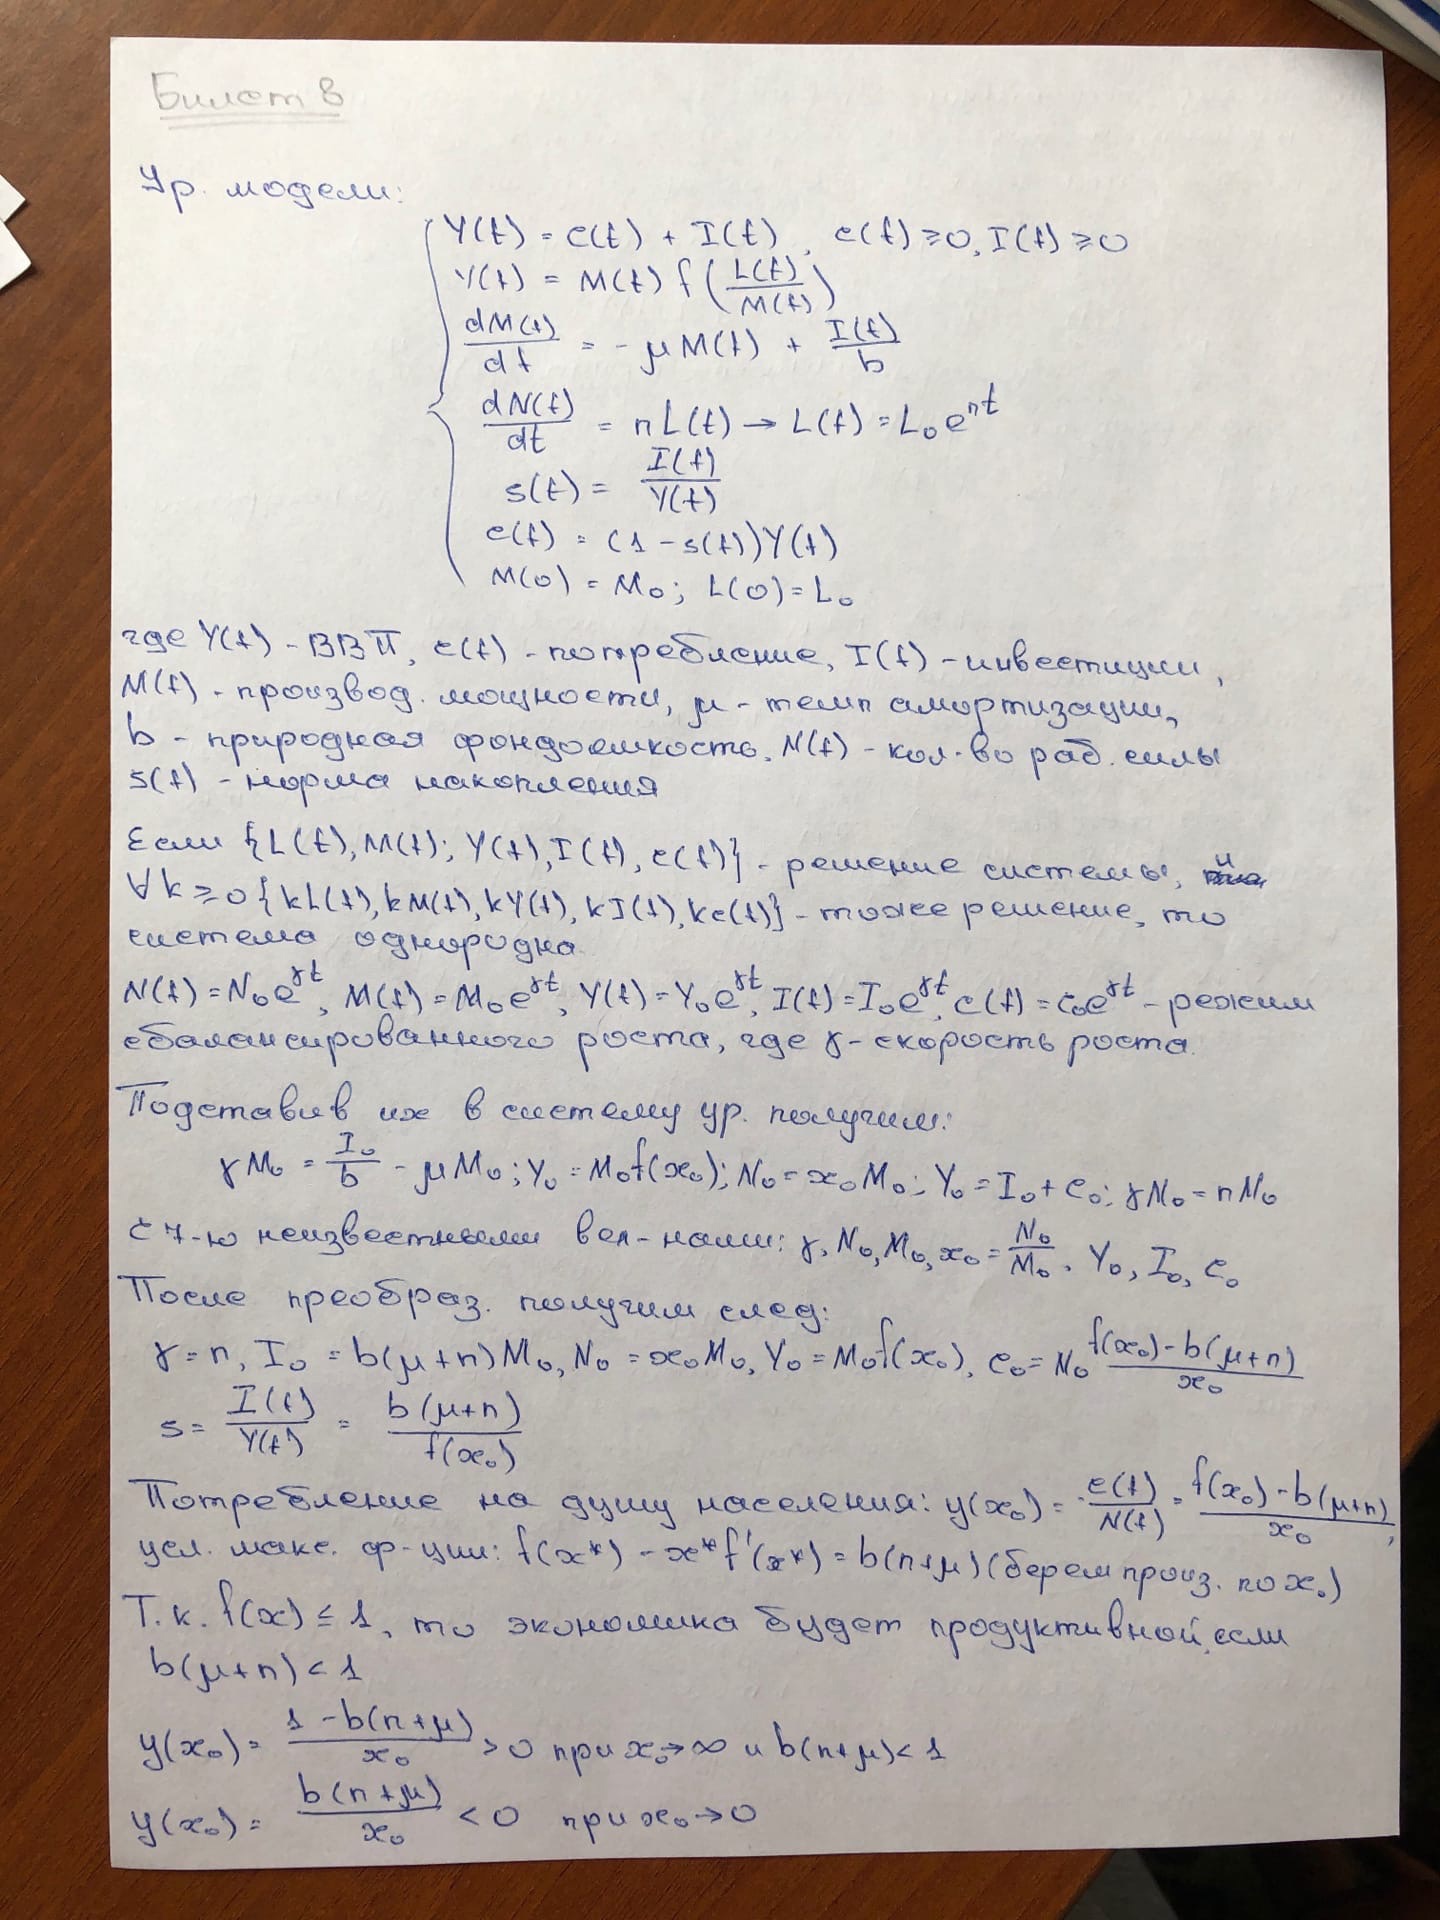 Билет 8
Ур. модели:
Y(t) = c(t) + I(t), c(t) ≥ 0, I(t) ≥ 0
Y(t) = M(t) f(L(t)/M(t))
dM(t)/dt = -μM(t) + I(t)/b
dN(t)/dt = nL(t) → L(t) = L₀e^(nt)
s(t) = I(t)/Y(t)
c(t) = (1-s(t))Y(t)
M(0) = M₀; L(0) = L₀
где Y(t) - ВВП, c(t) - потребление, I(t) - инвестиции,
M(t) - производ. мощности, μ - темп амортизации,
b - природная фондоемкость. N(t) - кол-во раб. силы
s(t) - норма накопления
Если {L(t), M(t); Y(t), I(t), c(t)} - решение системы, и
∀k ≥ 0 {kL(t), kM(t), kY(t), kI(t), kc(t)} - тоже решение, то
система однородна.
N(t) = N₀e^(γt), M(t) = M₀e^(γt), Y(t) = Y₀e^(γt), I(t) = I₀e^(γt), c(t) = c₀e^(γt) - режим
сбалансированного роста, где γ - скорость роста.
Подставив их в систему ур. получим:
γM₀ = I₀/b - μM₀; Y₀ = M₀f(x₀); N₀ = x₀M₀; Y₀ = I₀ + c₀; γN₀ = nM₀
с 7-ю неизвестными вел-нами: γ, N₀, M₀, x₀ = N₀/M₀, Y₀, I₀, c₀
После преобраз. получим след:
γ = n, I₀ = b(μ+n)M₀, N₀ = x₀M₀, Y₀ = M₀f(x₀), c₀ = N₀ (f(x₀) - b(μ+n))/x₀
s = I(t)/Y(t) = b(μ+n)/f(x₀)
Потребление на душу населения: y(x₀) = c(t)/N(t) = (f(x₀) - b(μ+n))/x₀,
усл. макс. ф-ции: f(x*) - x*f'(x*) = b(n+μ) (берем произ. по x₀)
Т.к. f(x) ≤ 1, то экономика будет продуктивной, если
b(μ+n) < 1
y(x₀) = (1 - b(n+μ))/x₀ > 0 при x₀→∞ и b(n+μ) < 1
y(x₀) = b(n+μ)/x₀ < 0 при x₀→0